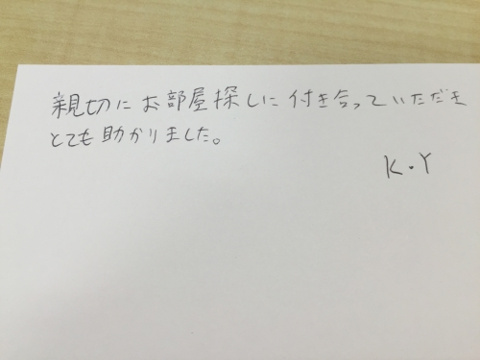 親切にお部屋探しに付き合っていただき
とても助かりました。
K.Y